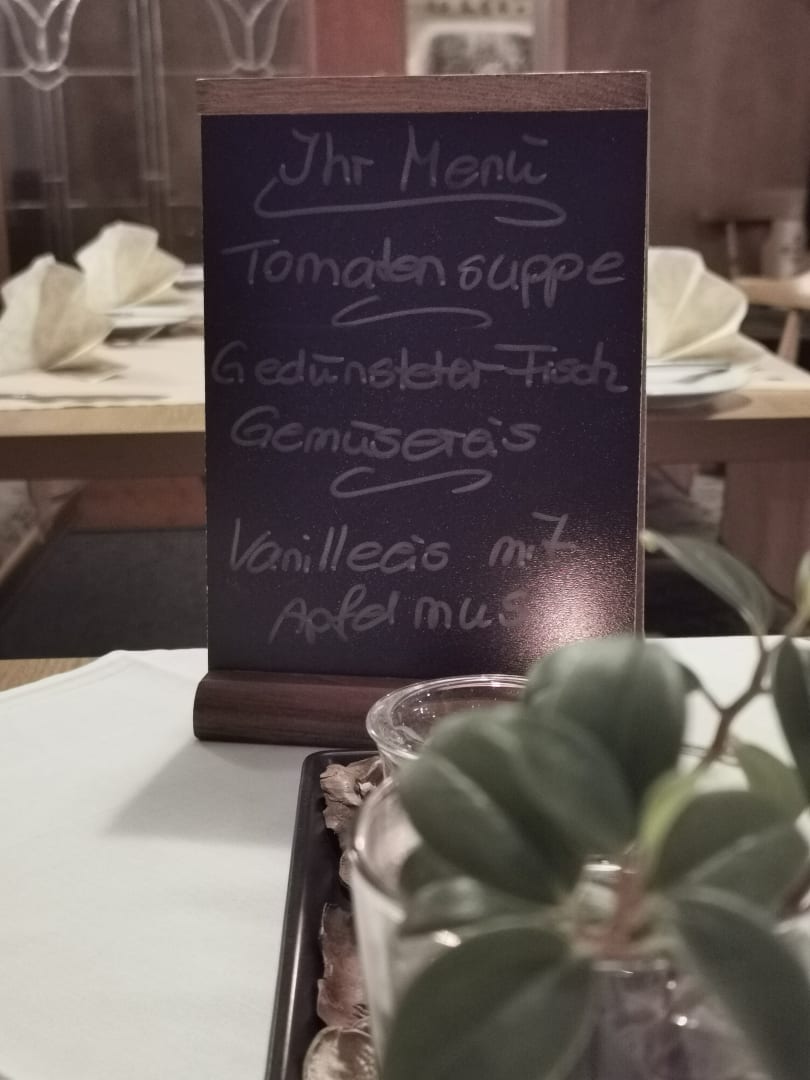 Ihr Menü
Tomatensuppe
Gedünsteter Fisch
Gemüsereis
Vanilleeis mit
Apfelmus